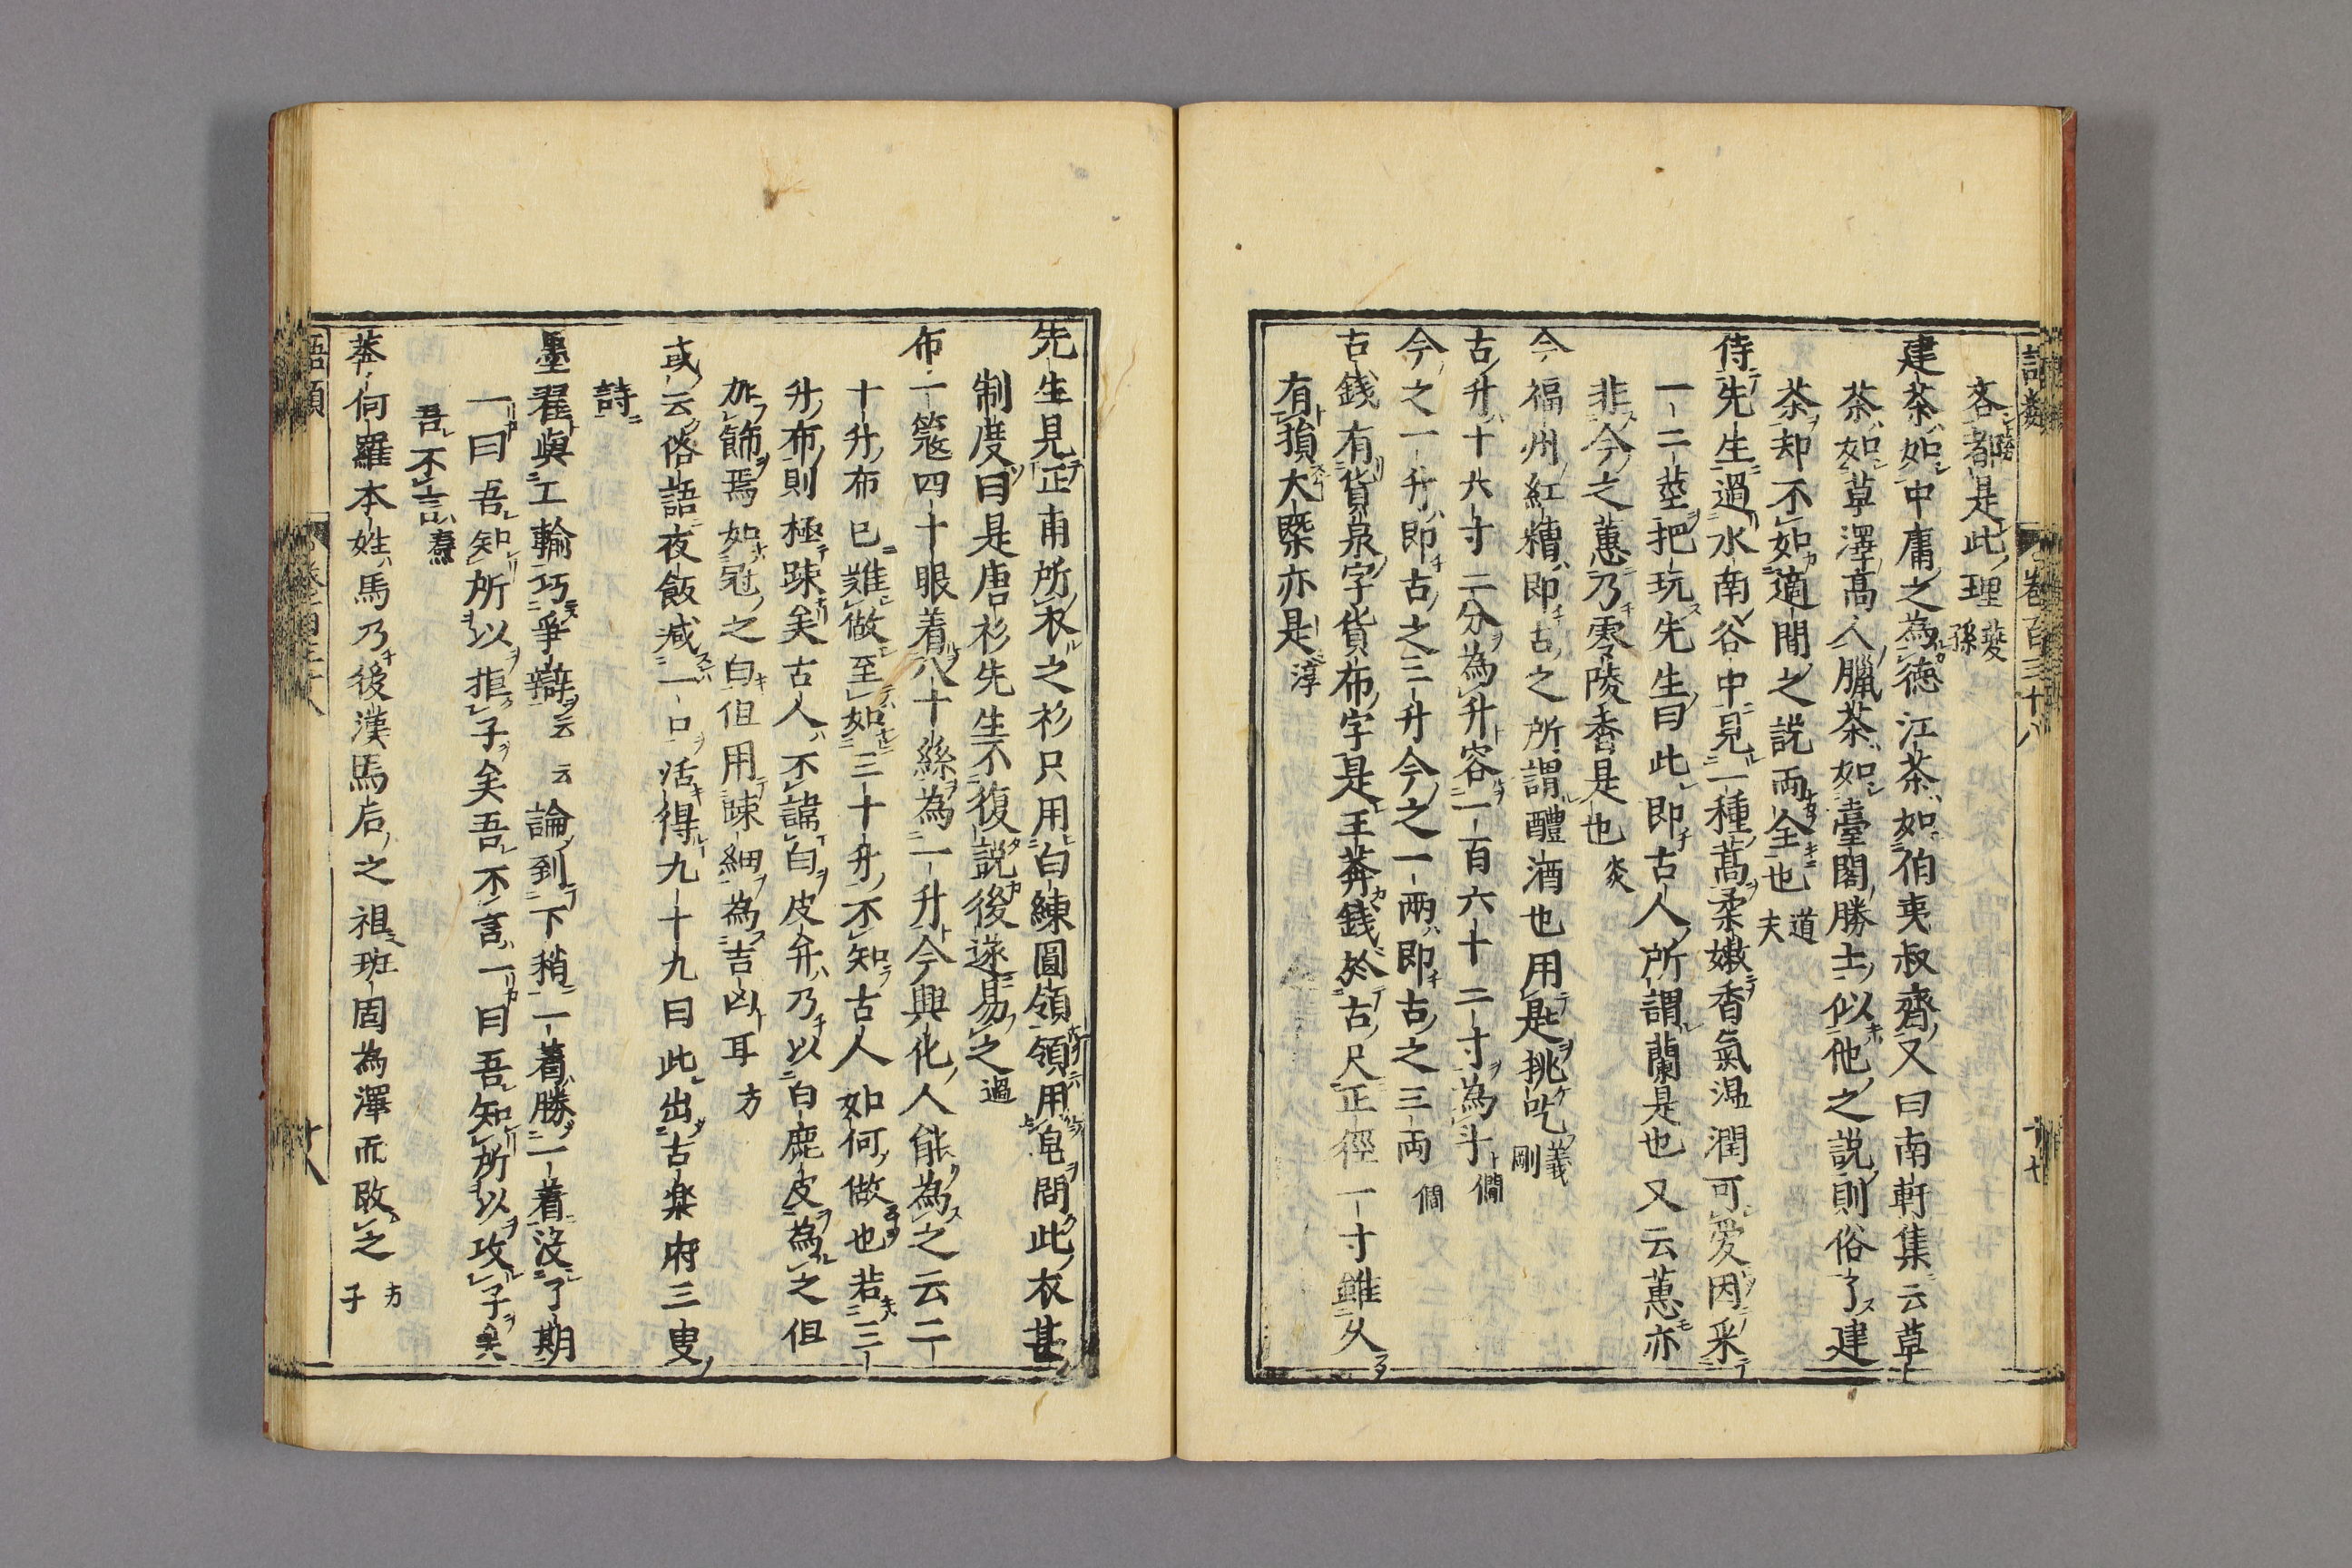 吝都是此理 夔孫
建茶如中庸之為德江茶如伯夷叔齊又曰南軒集云草
茶如草澤高人臘茶如臺閣勝士似他之説則俗了建
茶却不如適間之説兩全也 道夫
侍先生過水南谷中見一種蒿柔嫩香氣温潤可愛因采
一二莖把玩先生曰此即古人所謂蘭是也又云蕙亦
非今之蕙乃零陵香是也 炎
今福州紅糟即古之所謂醴酒也用是挑吃 義剛
古升十六寸二分為升容一百六十二寸為斗 僩
今之一升即古之三升今之一兩即古之三兩 僩
古錢有貨泉字貨布字是王莽錢於古尺正徑一寸雖久
有損大槩亦是 淳
先生見正甫所衣之衫只用白練圓領領用皂問此衣甚
制度曰是唐衫先生不復説後遂易之 過
布一簆四十眼着八十絲為一升今興化人能為之云二
十升布已難做至如三十升不知古人如何做也若三
升布則極踈矣古人不諱白皮弁乃以白鹿皮為之但
加飾焉如冠之白但用踈細為吉凶耳 方
或云俗語夜飯減一口活得九十九曰此出古楽府三叟
詩
墨翟與工輸巧爭辯云云論到下稍一着勝一着沒了期
一曰吾知所以拒子矣吾不言一曰吾知所以攻子矣
吾不言 燾
莽何羅本姓馬乃後漢馬后之祖班固為澤而改之 方子
語類 卷百三十八 十八